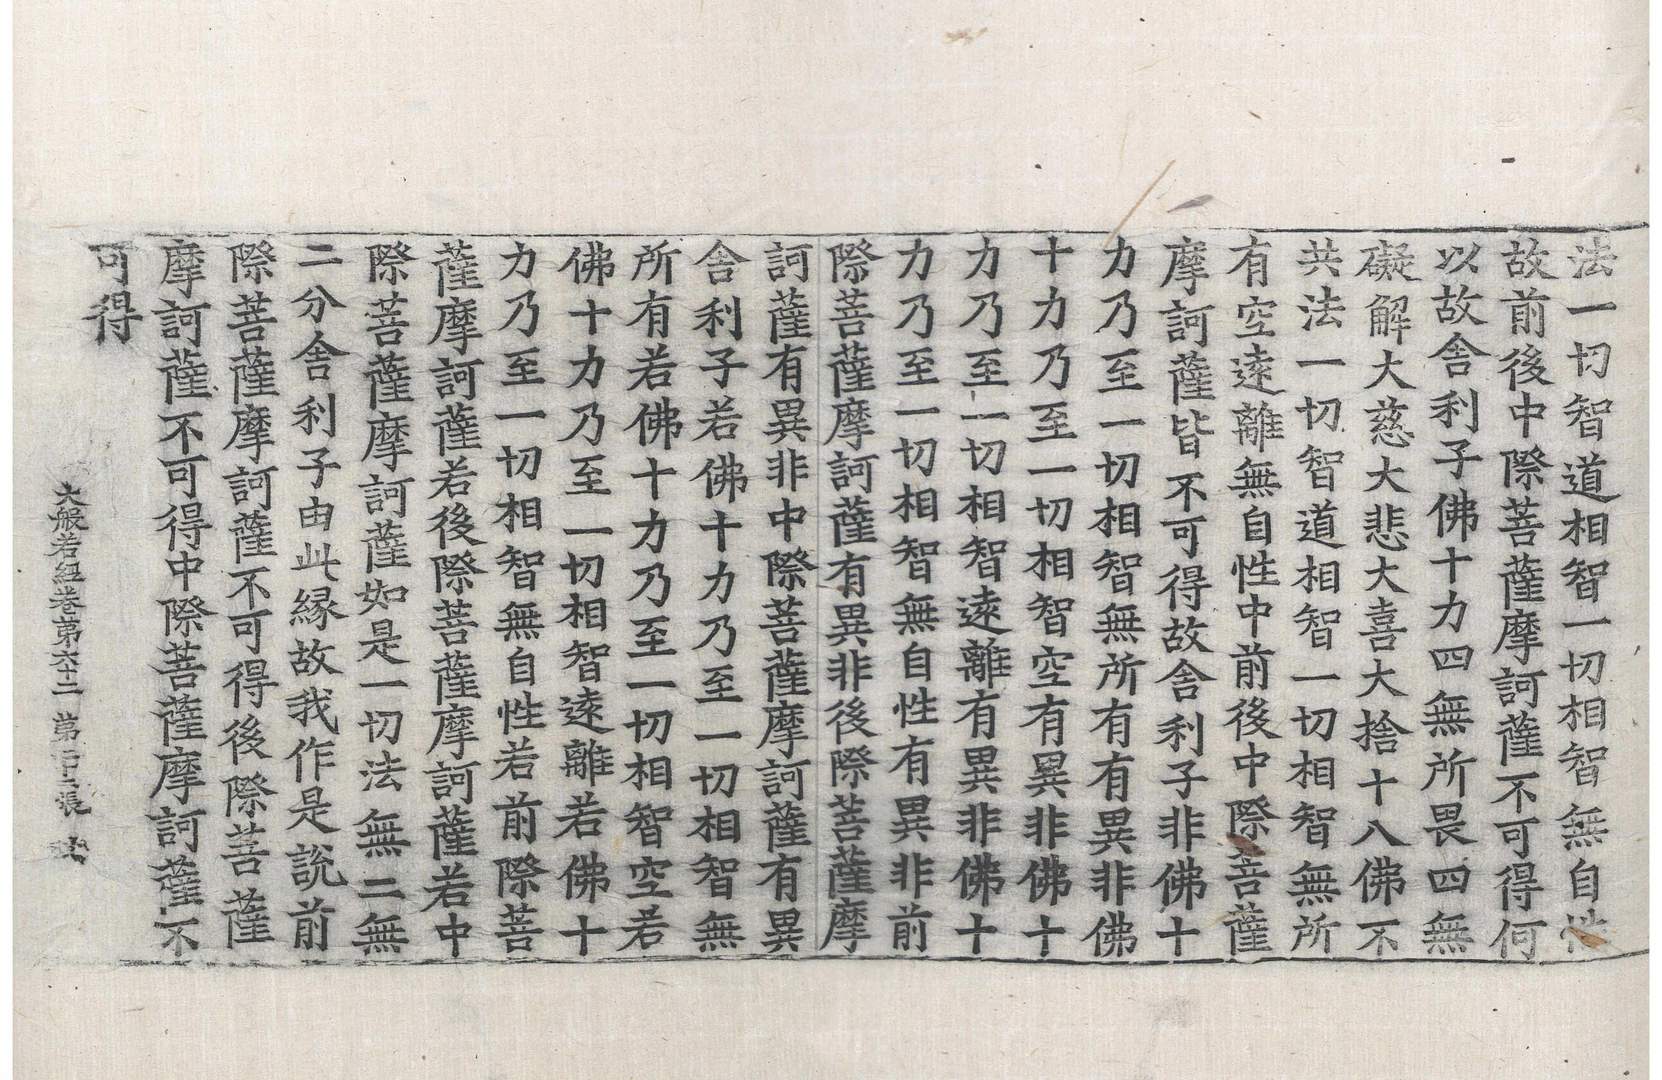 法一切智道相智一切相智無自性
故前後中際菩薩摩訶薩不可得何
以故舍利子佛十力四無所畏四無
礙解大慈大悲大喜大捨十八佛不
共法一切智道相智一切相智無所
有空遠離無自性中前後中際菩薩
摩訶薩皆不可得故舍利子非佛十
力乃至一切相智無所有有異非佛
十力乃至一切相智空有異非佛十
力乃至一切相智遠離有異非佛十
力乃至一切相智無自性有異非前
際菩薩摩訶薩有異非後際菩薩摩
訶薩有異非中際菩薩摩訶薩有異
舍利子若佛十力乃至一切相智無
所有若佛十力乃至一切相智空若
佛十力乃至一切相智遠離若佛十
力乃至一切相智無自性若前際菩
薩摩訶薩若後際菩薩摩訶薩若中
際菩薩摩訶薩如是一切法無二無
二分舍利子由此縁故我作是說前
際菩薩摩訶薩不可得後際菩薩
摩訶薩不可得中際菩薩摩訶薩不
可得
大般若經卷第六十二 第 張